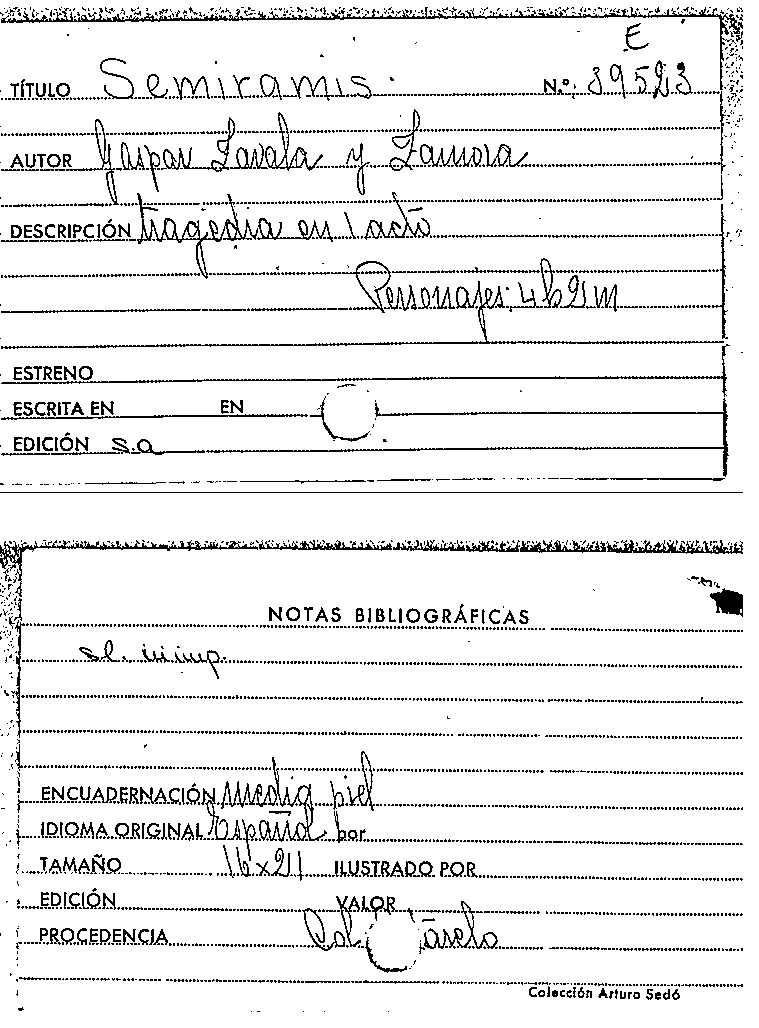 E
TÍTULO Semiramis. N.º: 39523
AUTOR Gaspar Zavala y Zamora
DESCRIPCIÓN tragedia en 1 acto
Personajes: 4h 2m
ESTRENO
ESCRITA EN EN
EDICIÓN s.a
NOTAS BIBLIOGRÁFICAS
sl. ni imp.
ENCUADERNACIÓN media piel
IDIOMA ORIGINAL Español por
TAMAÑO 16x21 ILUSTRADO POR
EDICIÓN VALOR
PROCEDENCIA Col.
Colección Arturo Sedó